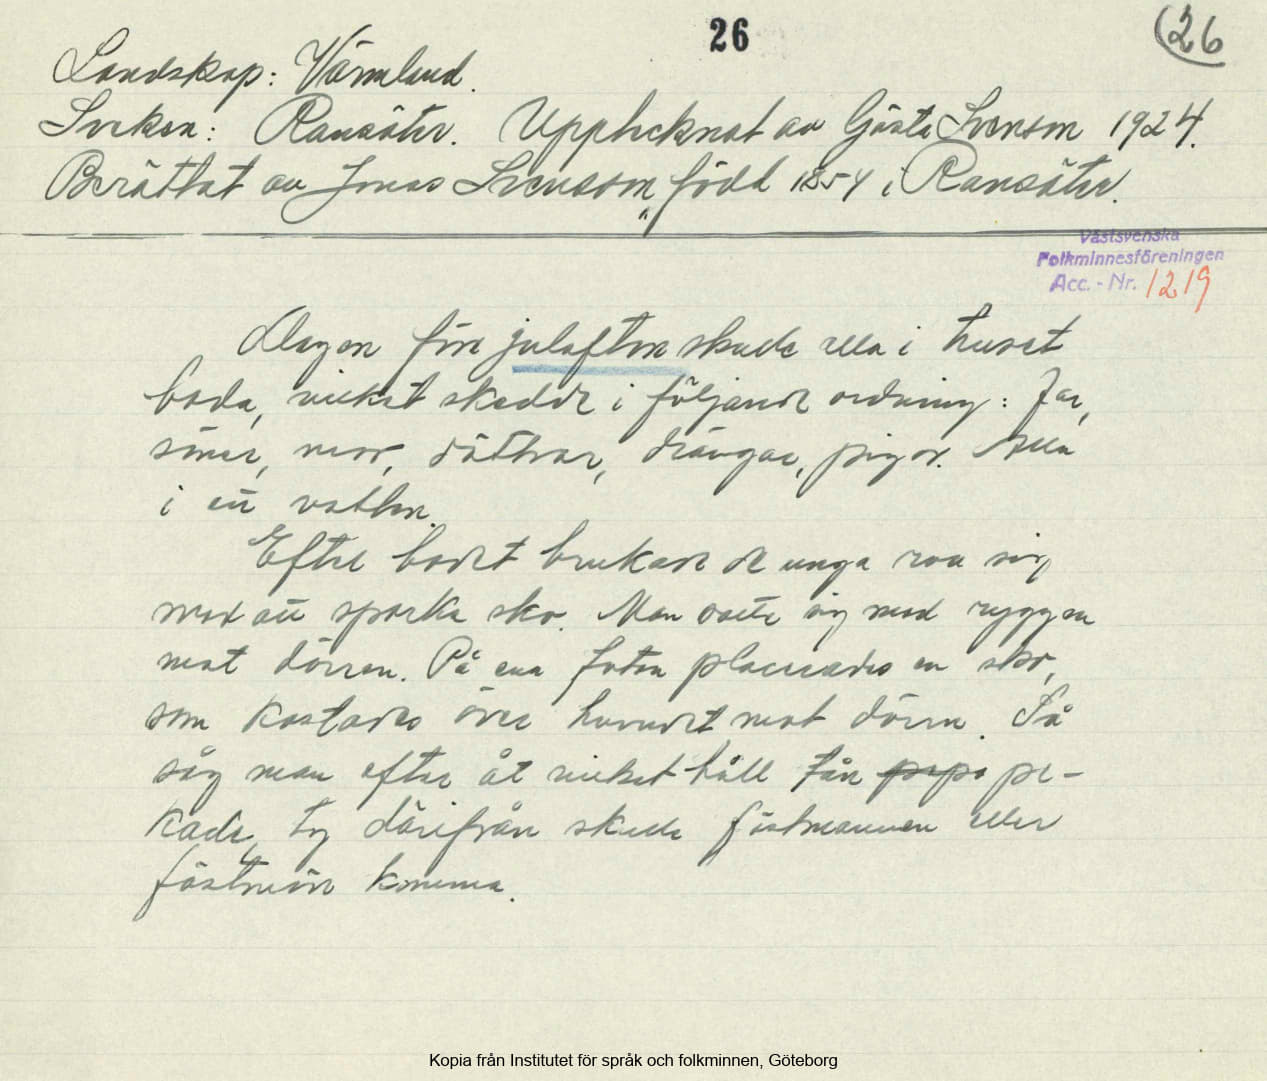 26
26
Landskap: Värmland.
Socken: Ransäter. Upptecknat av Gösta Svenson 1924.
Berättat av Jonas Svensson, född 1854 i Ransäter.
Västsvenska
Folkminnesföreningen
Acc. - Nr. 1219
Dagen före julafton skulle alla i huset
bada, vilket skedde i följande ordning: Far,
söner, mor, döttrar, drängar, pigor. Alla
i ett vatten.
Efter badet brukade de unga roa sig
med att sparka sko. Man satte sig med ryggen
mot dörren. På ena foten placerades en sko,
som kastades över huvudet mot dörren. Så
såg man efter åt vilket håll tån pe-
kade, ty därifrån skulle fästmannen eller
fästmön komma.
Kopia från Institutet för språk och folkminnen, Göteborg